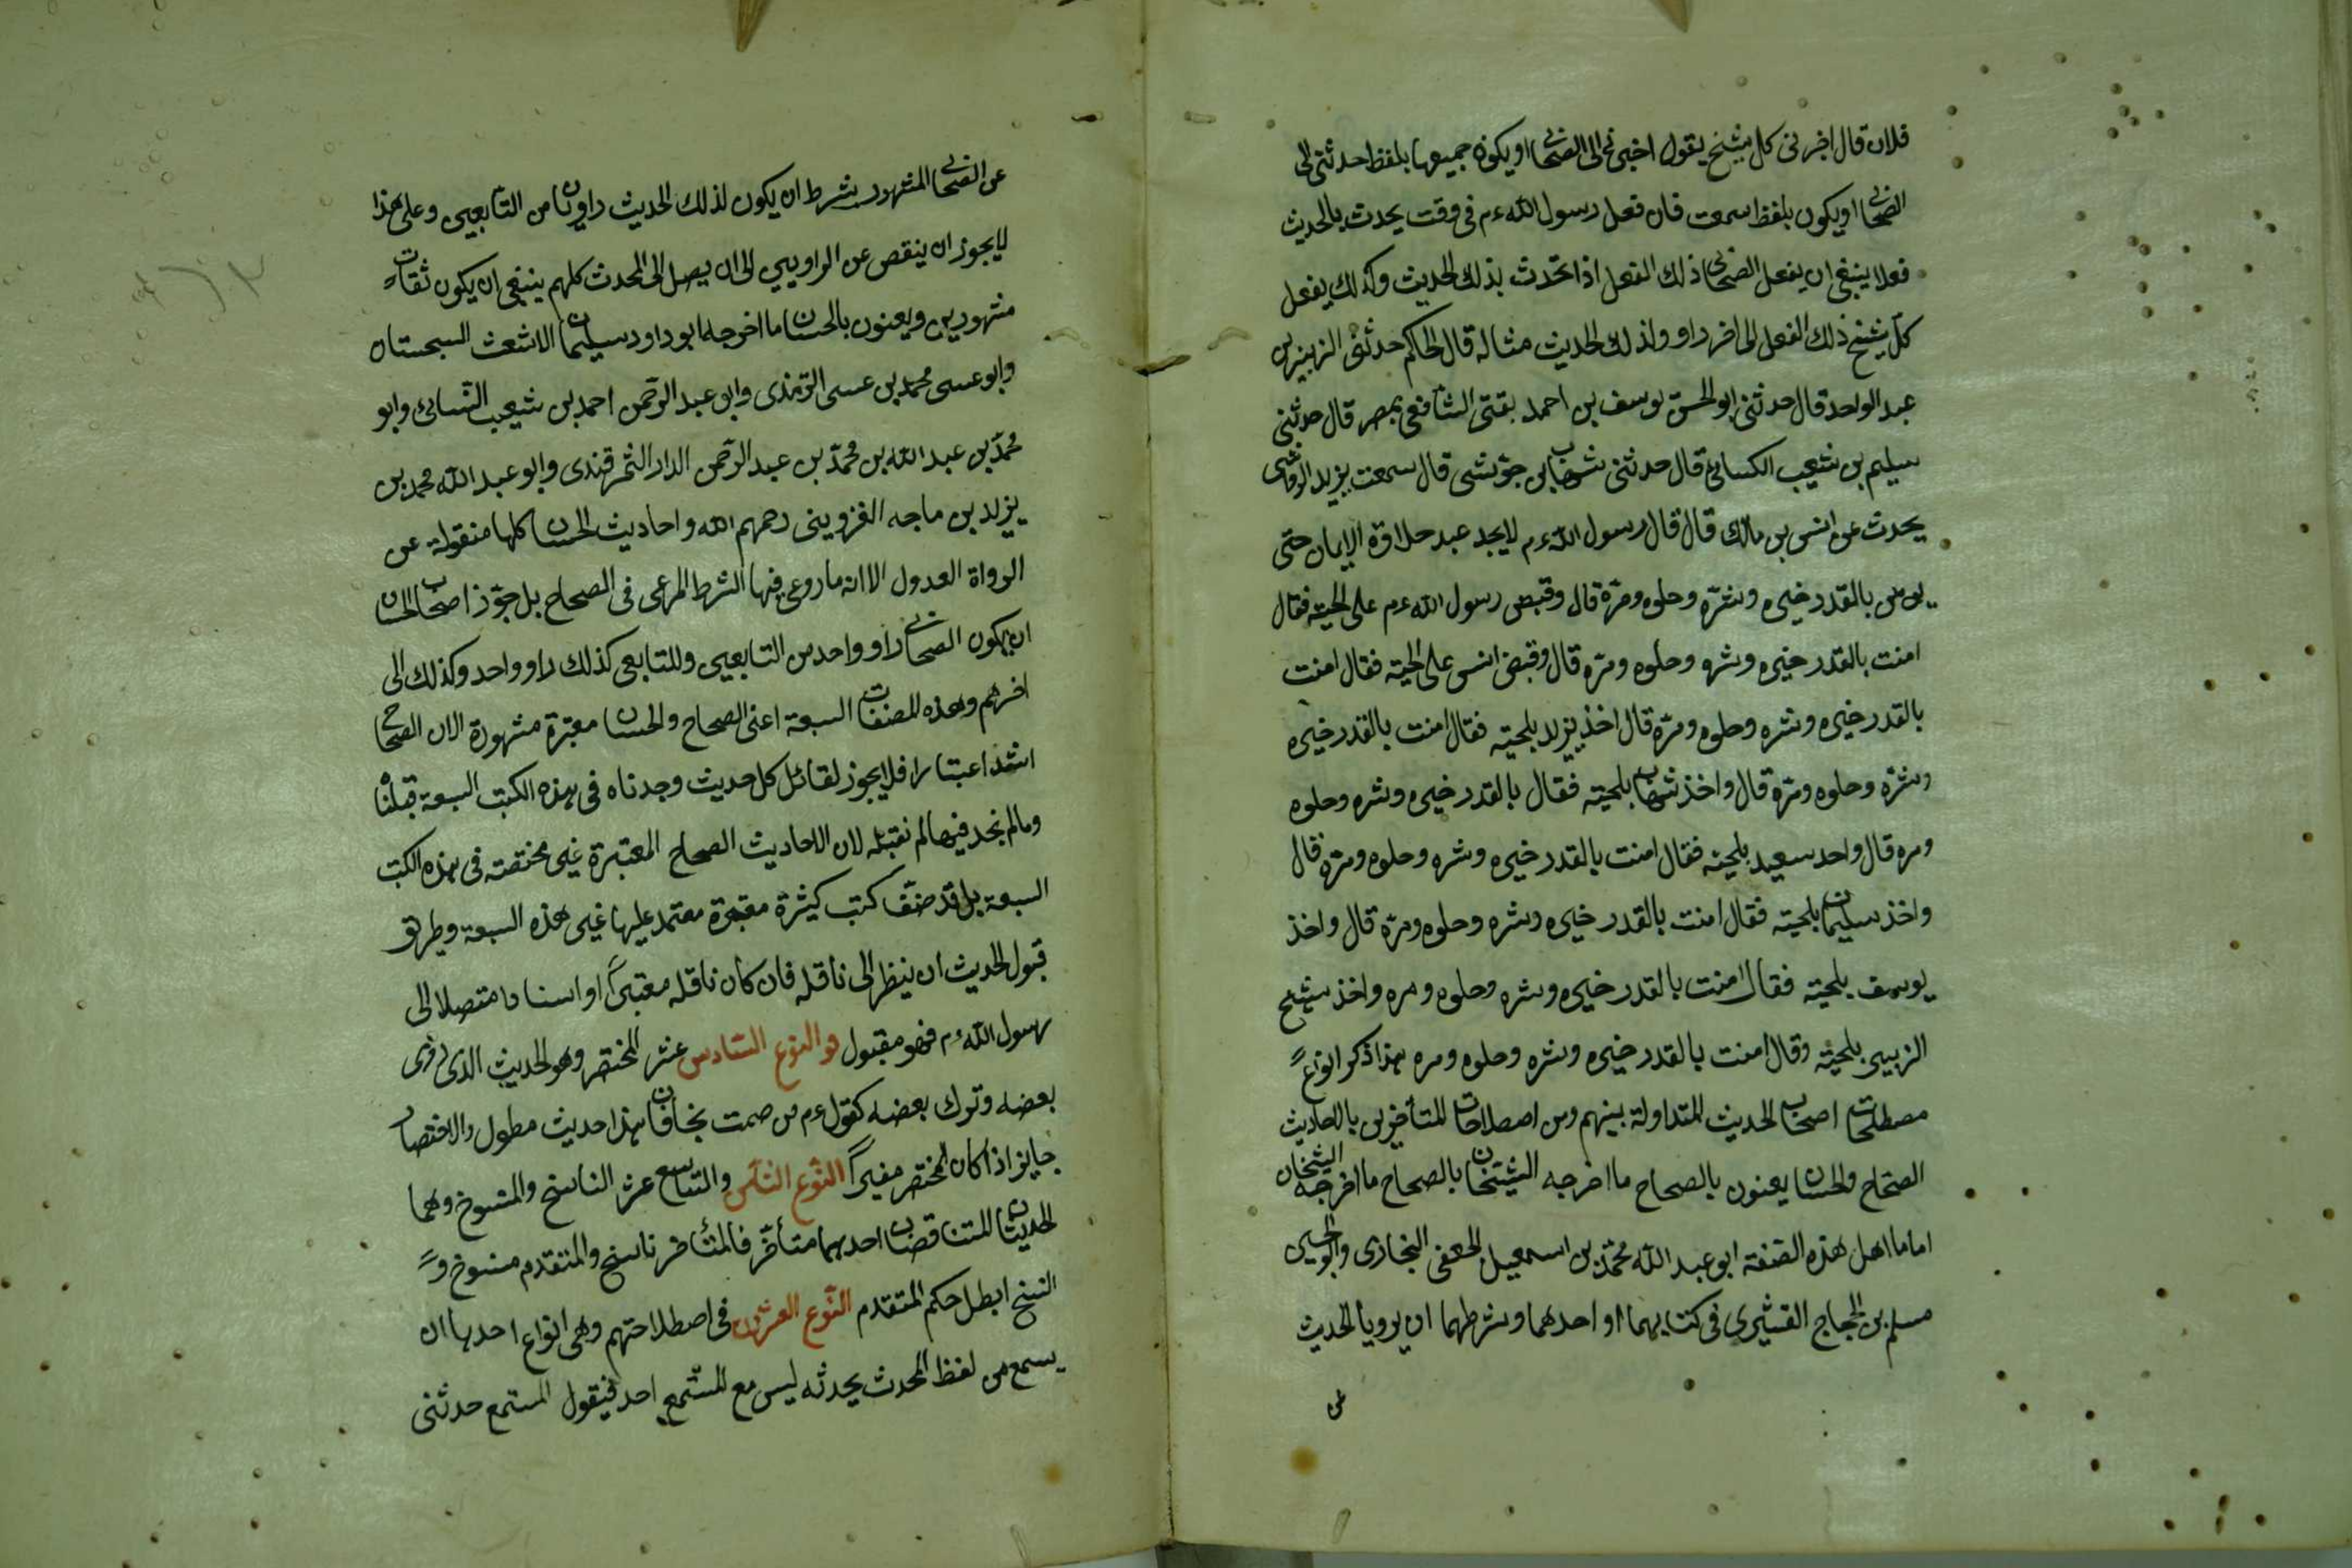 فلان قال اخبرنى كل شيخ يقول اخبرنى الى الصحابى او يكون جميعها بلفظ حدثنى الى
الصحابى او يكون بلفظ سمعت فان فعل رسول الله ءم فى وقت يحدث بالحديث
فعلا ينبغى ان يفعل الصحابى ذلك الفعل اذا تحدث بذلك الحديث وكذلك يفعل
كل شيخ ذلك الفعل الى اخر راو ولذلك الحديث مثاله قال الحاكم حدثنى الزبير بن
عبد الواحد قال حدثنى ابو الحسن يوسف بن احمد بقتى الشافعى بمصر قال حدثنى
سليم بن شعيب الكسائى قال حدثنى شهاب بن جوشى قال سمعت يزيد الرقاشى
يحدث عن انس بن مالك قال قال رسول الله ءم لا يجد عبد حلاوة الايمان حتى
يؤمن بالقدر خيره وشره وحلوه ومره قال وقبض رسول الله ءم على لحيته فقال
امنت بالقدر خيره وشره وحلوه ومره قال وقبض انس على لحيته فقال امنت
بالقدر خيره وشره وحلوه ومره قال اخذ يزيد بلحيته فقال امنت بالقدر خيره
وشره وحلوه ومره قال واخذ شهاب بلحيته فقال بالقدر خيره وشره وحلوه
ومره قال واحد سعيد بلحيته فقال امنت بالقدر خيره وشره وحلوه ومره قال
واخذ سليمان بلحيته فقال امنت بالقدر خيره وشره وحلوه ومره قال واخذ
يوسف بلحيته فقال امنت بالقدر خيره وشره وحلوه ومره واخذ شيخ
الزبير بلحيته وقال امنت بالقدر خيره وشره وحلوه ومره هذا ذكر انواع
مصطلحات اصحاب الحديث المتداولة بينهم ومن اصطلاحات المتأخرين بالاحاديث
الصحاح والحسان يعنون بالصحاح ما اخرجه الشيخان بالصحاح ما اخرجه الشيخان
اماما اهل هذه الصنفة ابو عبد الله محمد بن اسمعيل الجعفى البخارى وابو الحسين
مسلم بن الحجاج القشيرى فى كتابيهما او احدهما وشرطهما ان يرويا الحديث
عن
عن الصحابى المشهور بشرط ان يكون لذلك الحديث راويان من التابعين وعلى هذا
لا يجوز ان ينقص عن الراويين الى ان يصل الى المحدث كلهم ينبغى ان يكون ثقات
مشهورين ويعنون بالحسان ما اخرجه ابو داود سليمان الاشعث السجستان
وابو عسى محمد بن عسى الترمذى وابو عبد الرحمن احمد بن شعيب النسائى وابو
محمد بن عبد الله بن محمد بن عبد الرحمن الدار الثمرقندى وابو عبد الله محمد بن
يزيد بن ماجه القزوينى رحمهم الله واحاديث الحسان كلها منقولة عن
الرواة العدول الا انه ما روعى فيها الشرط المرعى فى الصحاح بل جوز اصحاب الحسان
ان يكون الصحابى راو واحد من التابعين وللتابعى كذلك راو واحد وكذلك الى
اخرهم وهذه المصنفات السبعة اعنى الصحاح والحسان معتبرة مشهورة الان الصحاح
اشد اعتبارا فلا يجوز لقائل كل حديث وجدناه فى هذه الكتب السبعة قبلناه
وما لم نجد فيها لم نقبله لان الاحاديث الصحاح المعتبرة غير مختصة فى هذه الكتب
السبعة بل قد صنف كتب كثيرة معتبرة معتمد عليها غير هذه السبعة وطريق
قبول الحديث ان ينظر الى ناقله فان كان ناقله معتبرا او اسنادا متصلا الى
رسول الله ءم فهو مقبول والنوع السادس عشر المختصر وهو الحديث الذى روى
بعضه وترك بعضه كقول ءم من صمت نجا فان هذا حديث مطول والاختصار
جايز اذا كان المختصر مفيرا النوع الثامن والتاسع عشر الناسخ والمنسوخ وهما
الحديثان المتناقضان احدهما متأخر فالمتأخر ناسخ والمتقدم منسوخ و
النسخ ابطل حكم المتقدم النوع العشرون فى اصطلاحتهم وهى انواع احدها ان
يسمع من لفظ المحدث يحدثه ليس مع المستمع احد فيقول المستمع حدثنى